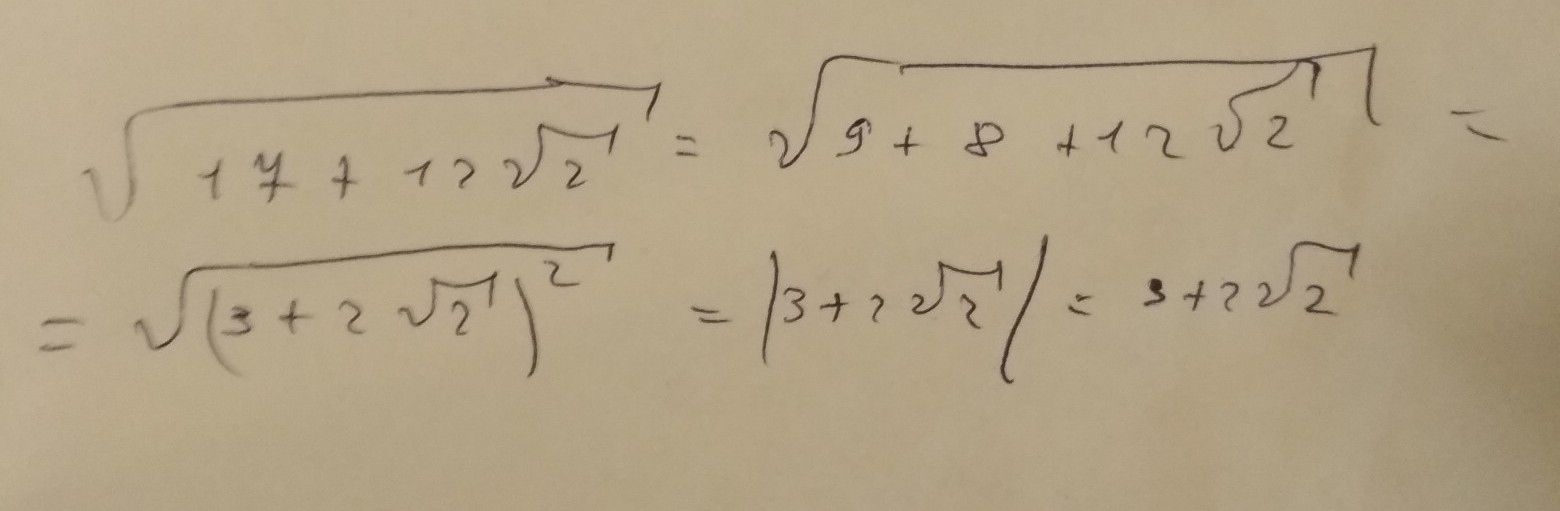 √(17 + 12√2) = √(9 + 8 + 12√2) =
= √((3 + 2√2)²) = |3 + 2√2| = 3 + 2√2